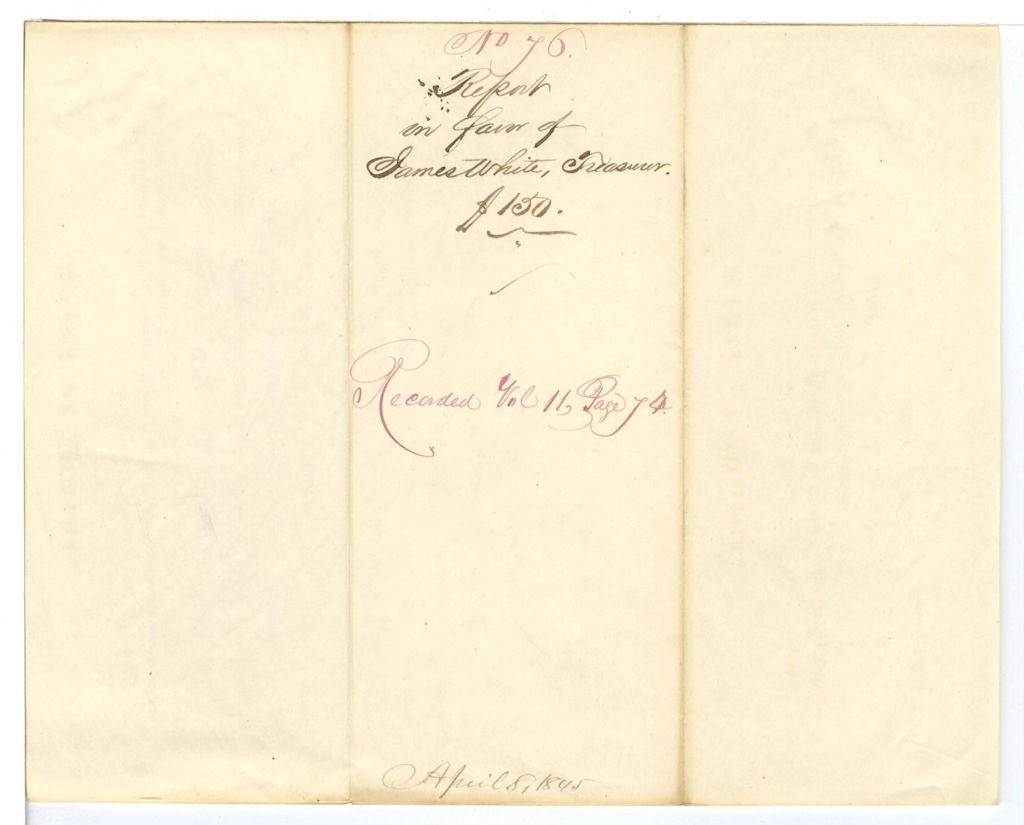 No 76.
Report
in favor of
James White, Treasurer.
$150.
Recorded Vol 11, Page 74.
April 8, 1845